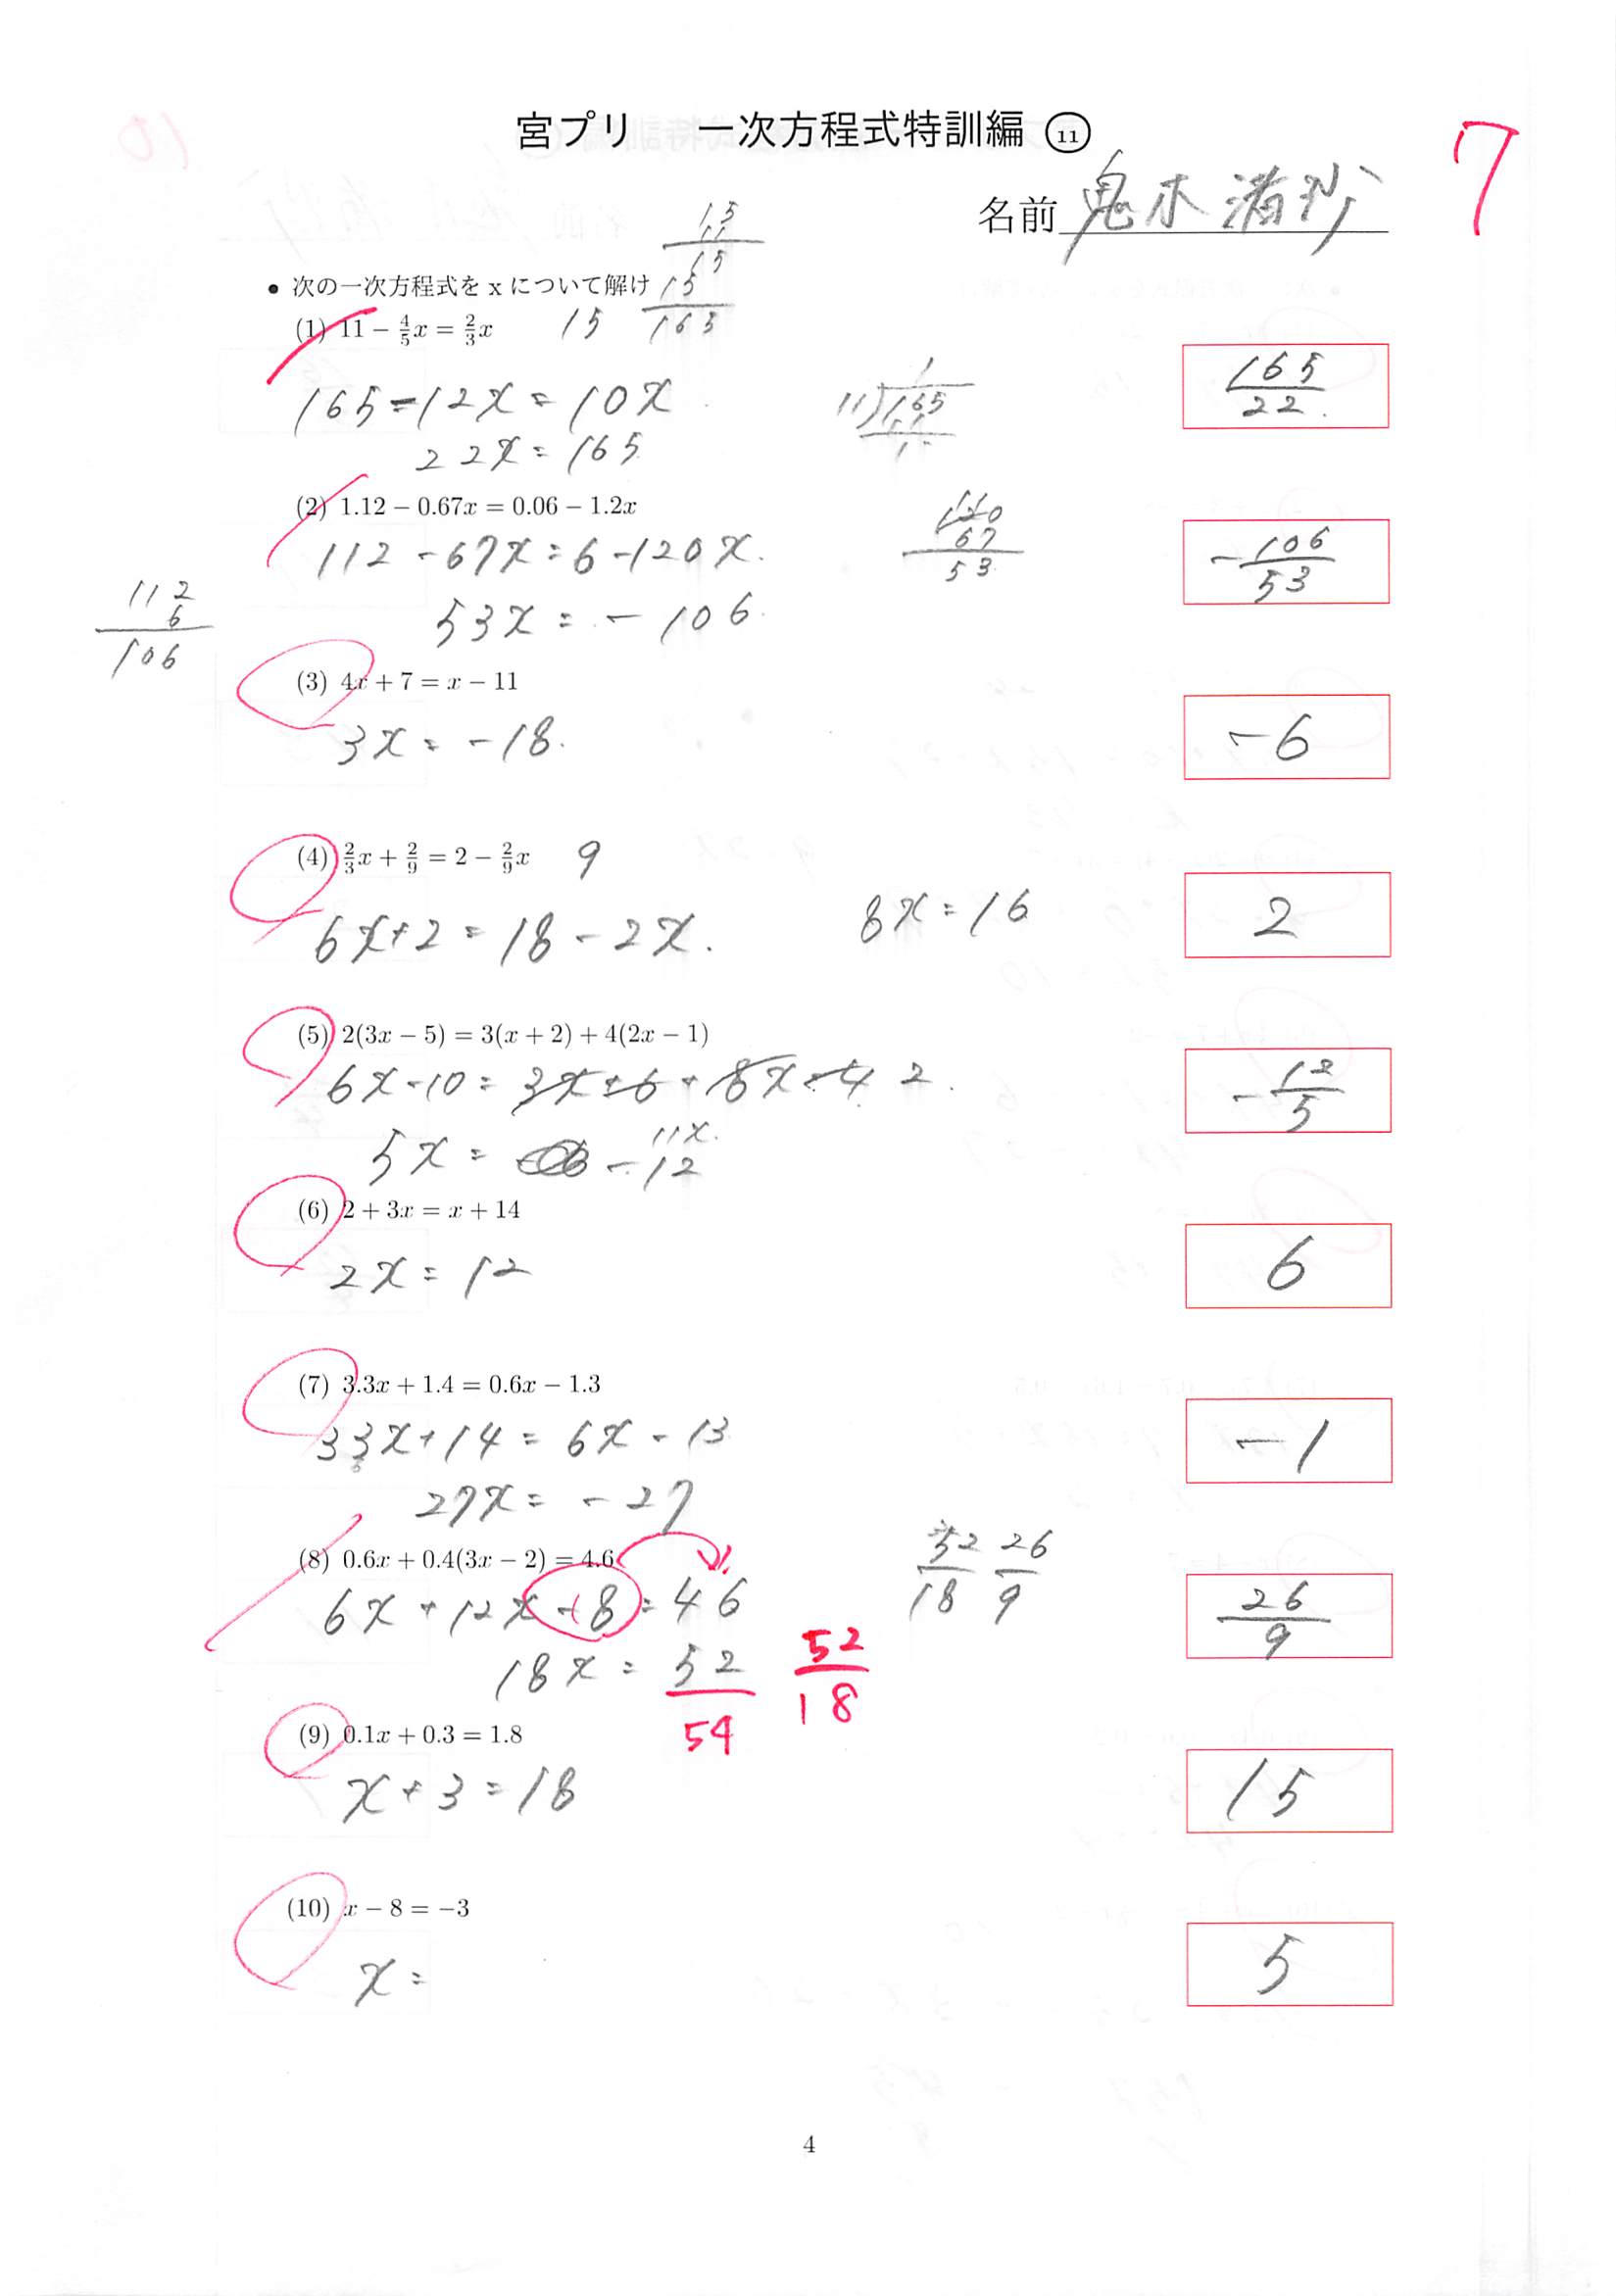 宮プリ 一次方程式特訓編 ⑪
7
名前 鬼木 渚沙
• 次の一次方程式を x について解け
15
11
15
15
165
(1) 11 − 4/5 x = 2/3 x
15
165 - 12x = 10x
22x = 165
11)165
1
11
165/22
(2) 1.12 − 0.67x = 0.06 − 1.2x
112 - 67x = 6 - 120x
53x = - 106
112
6
106
120
67
53
-106/53
(3) 4x + 7 = x − 11
3x = -18
-6
(4) 2/3 x + 2/9 = 2 − 2/9 x
9
6x + 2 = 18 - 2x
8x = 16
2
(5) 2(3x − 5) = 3(x + 2) + 4(2x − 1)
6x - 10 = 3x + 6 + 8x - 4 2
11x
5x = -12
-12/5
(6) 2 + 3x = x + 14
2x = 12
6
(7) 3.3x + 1.4 = 0.6x − 1.3
33x + 14 = 6x - 13
27x = -27
-1
(8) 0.6x + 0.4(3x − 2) = 4.6
6x + 12x - 8 = 46
18x = 52
54
52/18
52/18 26/9
26/9
(9) 0.1x + 0.3 = 1.8
x + 3 = 18
15
(10) x − 8 = −3
x =
5
4